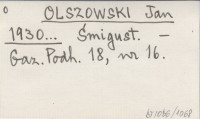 OLSZOWSKI Jan
1930... Śmigust. –
Gaz. Podh. 18, nr 16.